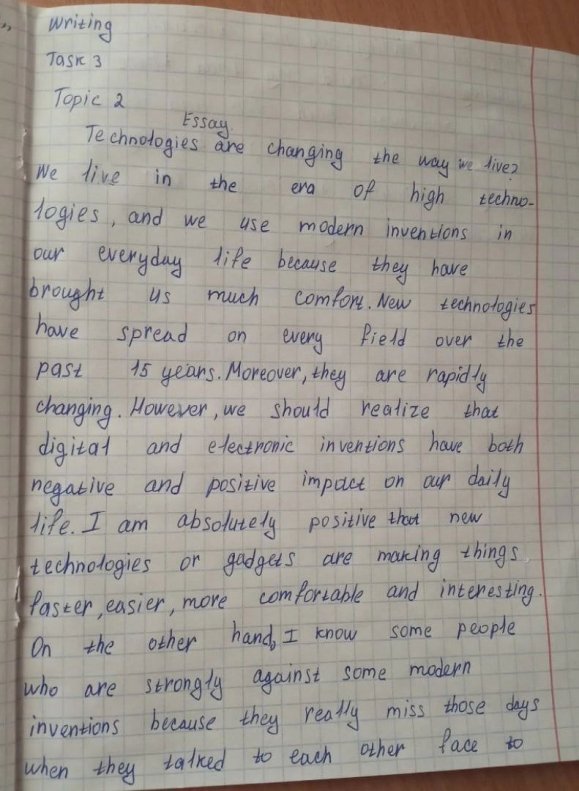 Writing
Task 3
Topic 2
Essay
Technologies are changing the way we live?
We live in the era of high techno-
logies, and we use modern inventions in
our everyday life because they have
brought us much comfort. New technologies
have spread on every field over the
past 15 years. Moreover, they are rapidly
changing. However, we should realize that
digital and electronic inventions have both
negative and positive impact on our daily
life. I am absolutely positive that new
technologies or gadgets are making things
faster, easier, more comfortable and interesting.
On the other hand, I know some people
who are strongly against some modern
inventions because they really miss those days
when they talked to each other face to